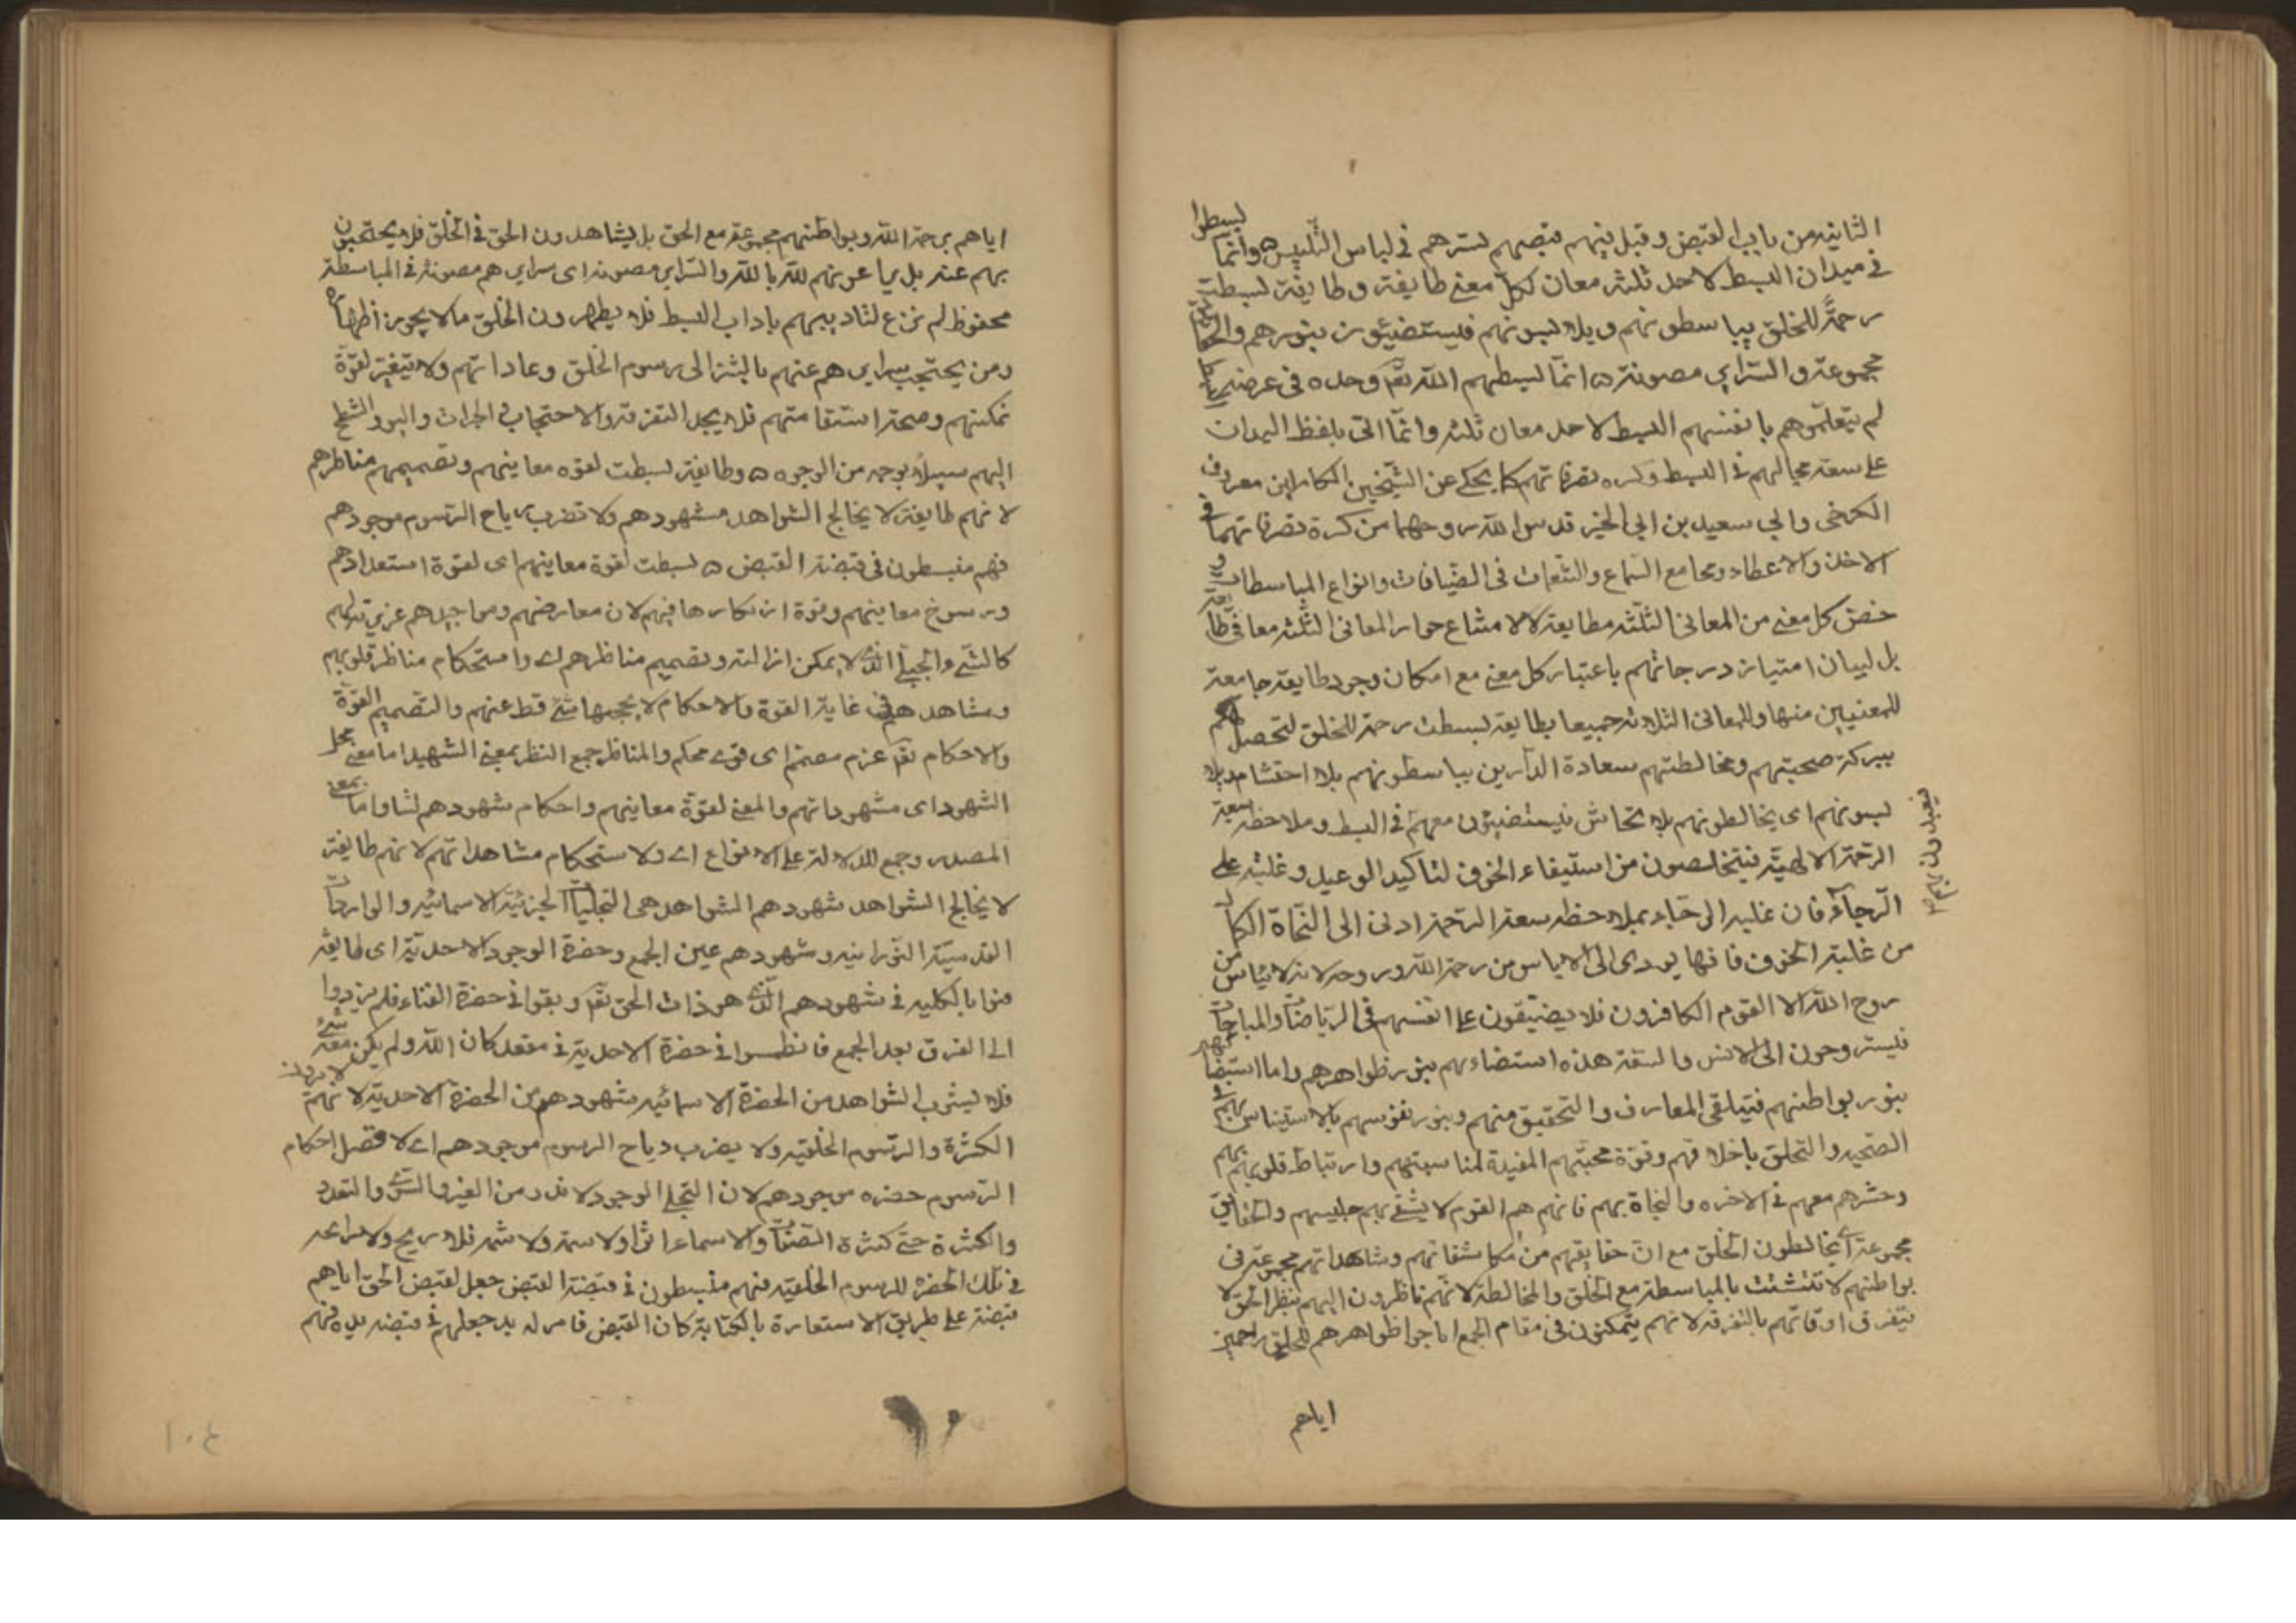 الثانيه من باب القبض وقيل فيهم قبضهم بسترهم في لباس التلبيس ٥ وانما بسطوا
في ميدان البسط لاحد ثلثه معان لكل معنى طايفة وطايفة بسطت
رحمة للخلق يباسطونهم ويلابسونهم فيستضيئون بنورهم والحقايق
مجموعة والسراير مصونة ٥ انما بسطهم الله تعا وحده في
لم بانفسهم البسط لاحد معان ثلثه وانما اتى بلفظ الميدان
على سعة مجالهم في البسط وكثره تصرفاتهم كما يحكى عن الشيخين الكاملين معروف
الكرخى وابي سعيد بن ابي الخير قدس الله روحهما من كثرة تصرفاتهما في
الاخذ والاعطاء ومجامع السماع والتنعمات في الضيافات وانواع المباسطات و
خص كل معنى من المعانى الثلثه بطايفة لا لامتناع جواز المعانى الثلثه معا في طايفة
بل لبيان امتياز درجاتهم باعتبار كل معنى مع امكان وجود طايفة جامعة
للمعنيين منها وللمعانى الثلاثه جميعا بطايفة بسطت رحمة للخلق لتحصل لهم
ببركة صحبتهم ومخالطتهم سعادة الدارين يباسطونهم بلا احتشام ويلا
بسونهم اى يخالطونهم بلا تحاش فيستضيئون معهم في البسط وملاحظة سعة
الرحمة الالهية فيتخلصون من استيفاء الخوف لتاكيد الوعيد وغلبته على
الرجاء فان غلبة الرجاء بملاحظه سعة الرحمة ادنى الى النجاة
من غلبة الخوف فانها يودى الى الاياس من رحمة الله وروحه لانه لا يياس من
روح الله الا القوم الكافرون فلا يضيقون على انفسهم في الرياضات والمباحات
فيستروحون الى الانس والسعة هذه استضاءتهم بنور ظواهرهم واما استضاءتهم
بنور بواطنهم فبتلقى المعارف والتحقيق منهم وبنور نفوسهم بالاستيناس بهم في
الصحبه والتخلق باخلاقهم وقوة محبتهم المفيدة لمناسبتهم وارتباط قلوبهم بهم
وحشرهم معهم في الاخره والنجاة بهم فانهم هم القوم لا يشقى بهم جليسهم والحقايق
مجموعة اى يخالطون الخلق مع ان حقايقهم من مكاشفاتهم ومشاهداتهم مجموعة في
بواطنهم لا تتشتت بالمباسطة مع الخلق والمخالطة لانهم ناظرون اليهم بنظر الحق لا
يتفرق اوقاتهم بالتفرقة لانهم يتمكنون في مقام الجمع ظواهرهم للخلق راحمين
اياهم
اياهم برحمة الله وبواطنهم مجموعة مع الحق بل يشاهدون الحق في الخلق فلا يحتجبون
بهم عنه بل يباعونهم لله بالله والسراير مصونه اى سرايرهم مصونة في المباسطة
محفوظ لم تزغ لتاديبهم باداب البسط فلا يظهرون الخلق ما لا يجوز اظهاره
ومن يحتجب سرايرهم عنهم بالبشر الى رسوم الخلق وعاداتهم ولا يتغير لقوة
تمكينهم وصحة استقامتهم فلا يجد التفرقه والاحتجاب والشطح
اليهم سبيلا بوجه من الوجوه ٥ وطايفة بسطت لقوه معاينهم وتصميم مناظرهم
لانهم طايفة لا يخالج الشواهد مشهودهم ولا تضرب رياح الرسوم موجودهم
فهم منبسطون في قبضة القبض ٥ بسطت لقوة معاينهم اى لقوة استعدادهم
ورسوخ معاينهم وقوة فيهم لان معارفهم ومواجيدهم
كالشى والجبلى الذى لا يمكن ازالته وتصميم مناظرهم اى واستحكام مناظر قلوبهم
ومشاهدهم في غاية القوة والاحكام لا يحجبها شى قط عنهم والتصميم القوة
والاحكام تقول عزم مصمم اى قوى محكم والمناظر جمع النظر بمعنى الشهيد اما معنى محل
الشهود اى مشهوداتهم والمعنى لقوة معاينهم واحكام شهودهم واما بمعنى
المصدر وجمع للدلالة على الانواع اى ولاستحكام مشاهداتهم لانهم طايفة
لا يخالج الشواهد شهودهم الشواهد هى التجليات الجزئية الاسمائيه والواردات
القدسية النورانيه وشهودهم عين الجمع وحضرة الوجود الاحدية اى طايفة
فنوا بالكليه في شهودهم الذى هو ذات الحق تعا وبقوا في حضرة الفناء فلم يردوا
الى الفرق بعد الجمع فانطمسوا في حضرة الاحدية في مقعد كان الله ولم يكن معه شى
فلا يشوب الشواهد من الحضرة الاسمائيه مشهودهم من الحضرة الاحدية لانهم لا يرون
الكثرة والرسوم الخلقيه ولا يضرب رياح الرسوم موجودهم اى لا احكام
الرسوم حضره موجودهم لان التجلى الوجود لا من الغير والشى والتعدد
والكثرة حتى كثرة الصفات والاسماء اثرا ولا سمة ولا شمه فلا ريح ولا رايحه
في تلك الحضره للرسوم الخلقيه فهم منبسطون في قبضة القبض جعل لقبض الحق اياهم
قبضة على طريق الاستعارة بالكناية كان القبض له يد جعلهم في قبضه يده فهم
١٠٤